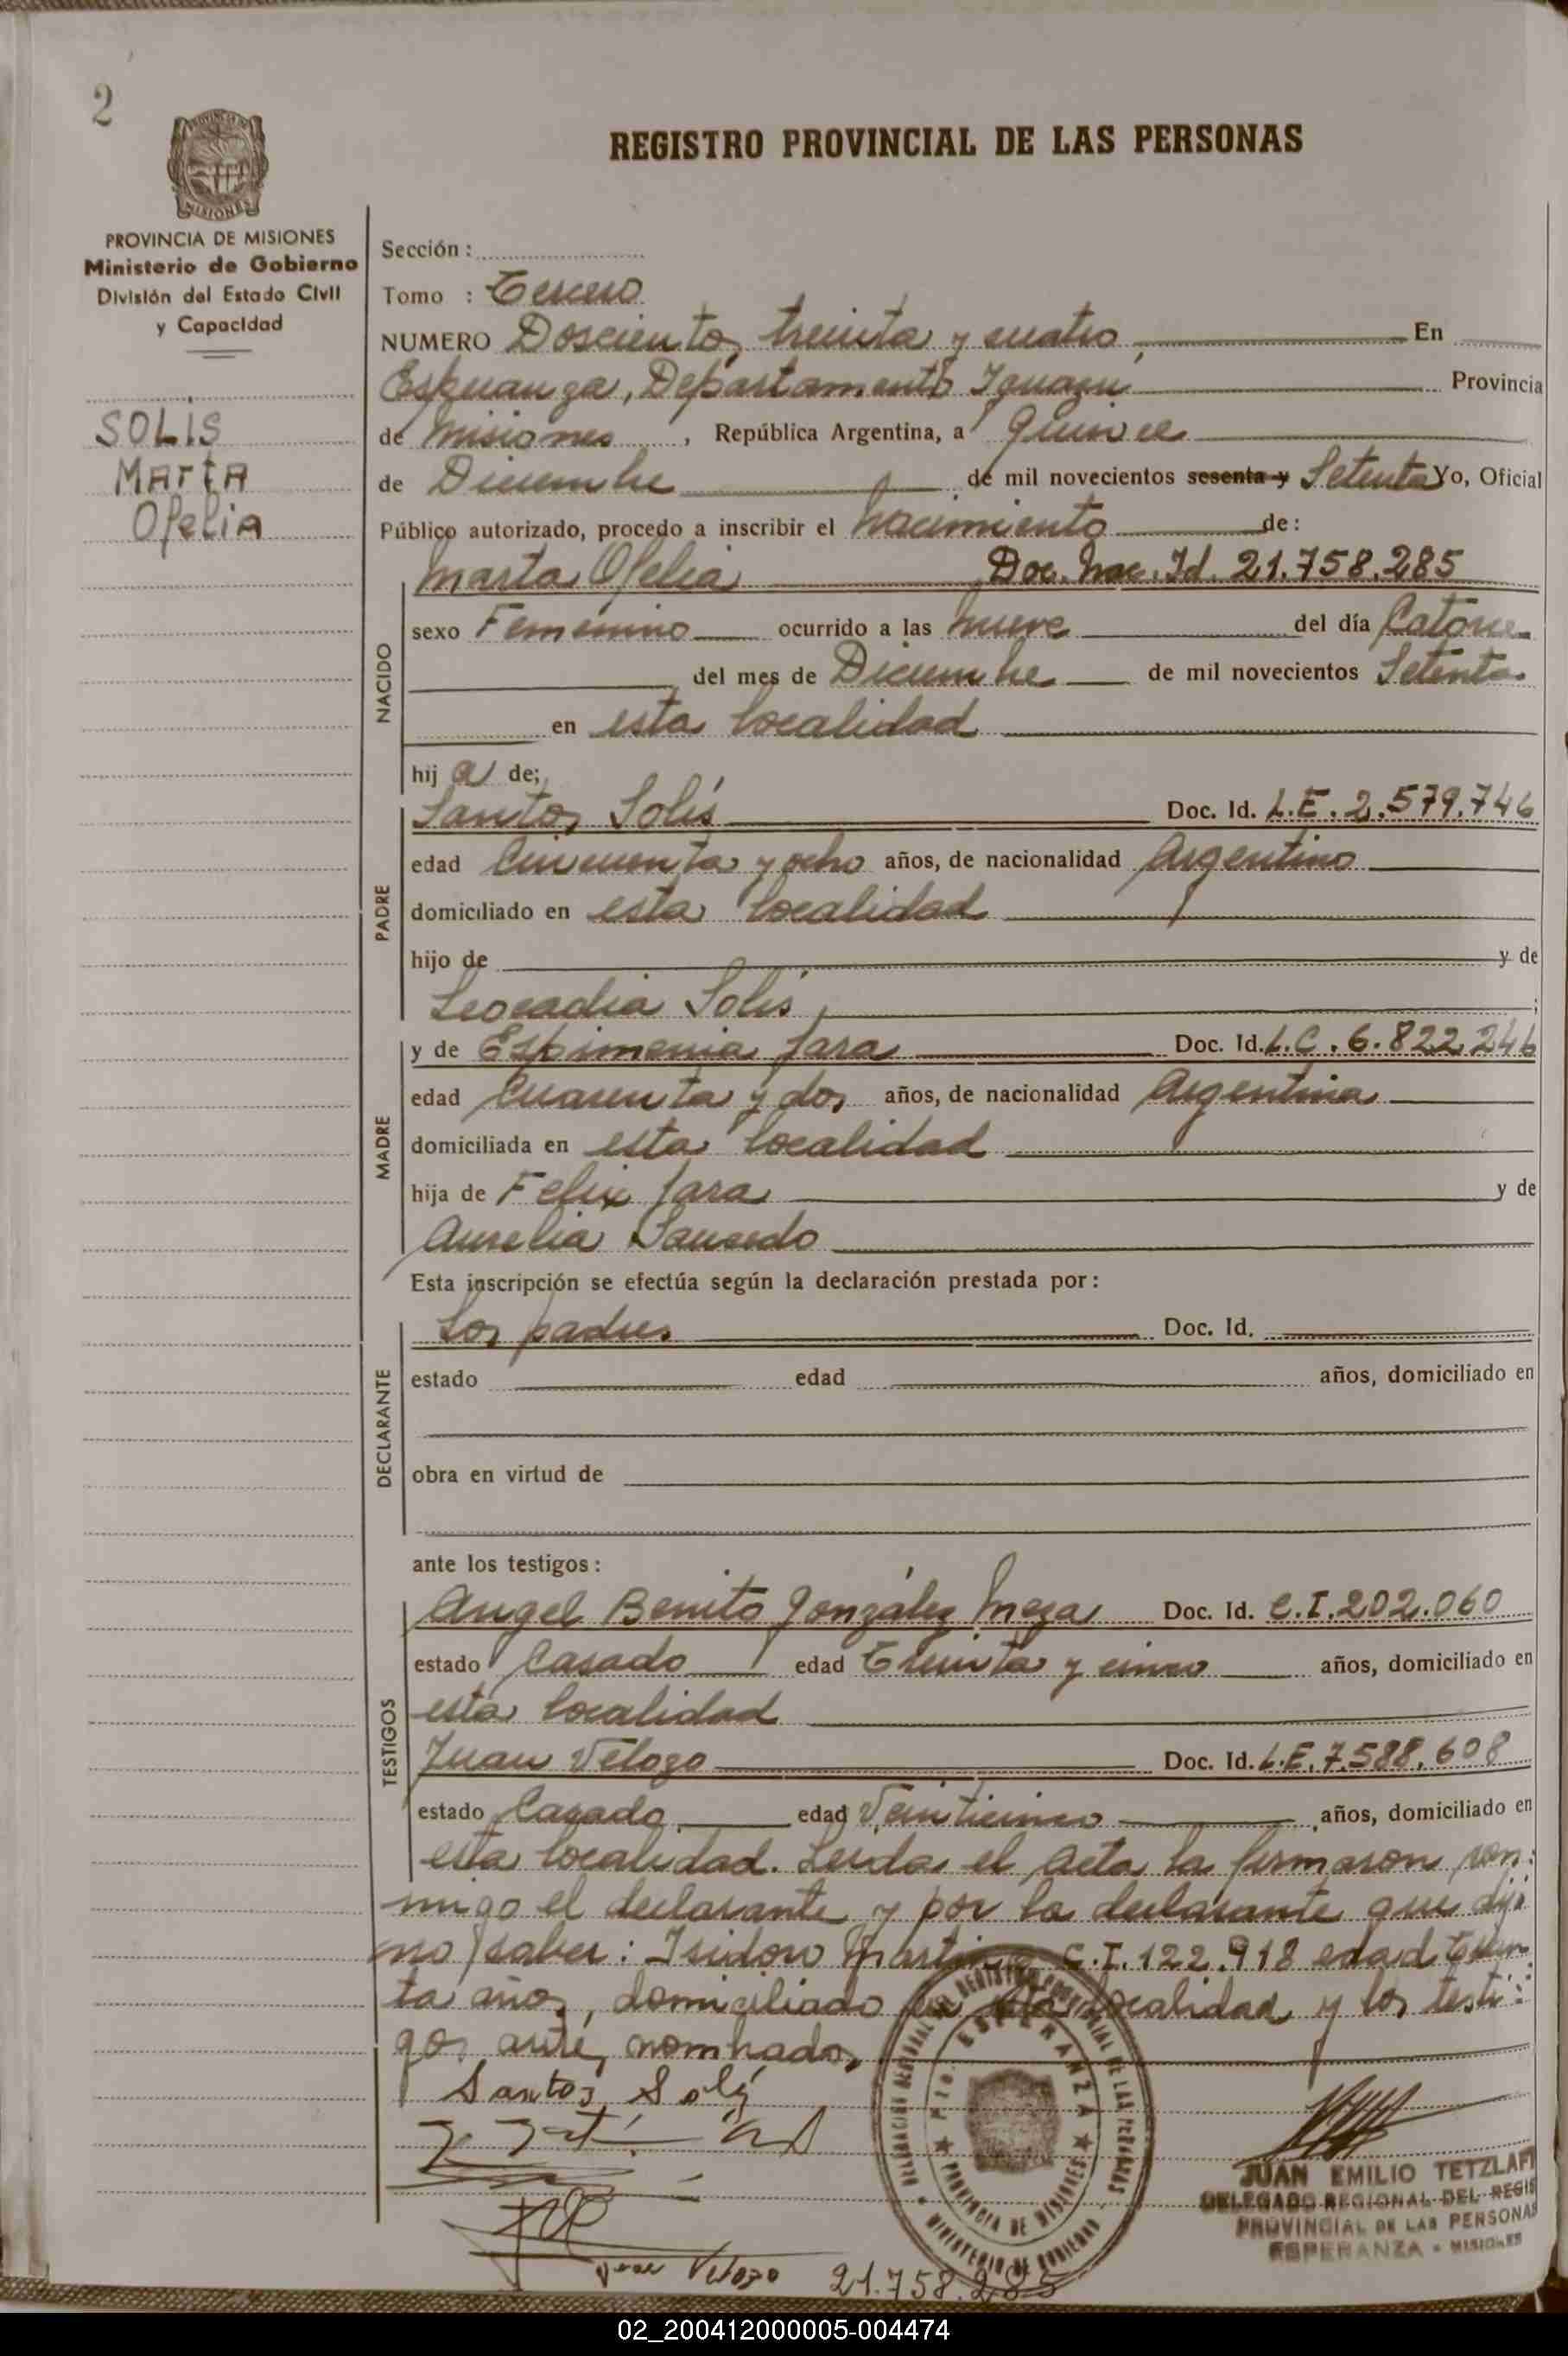 2
MISIONES
PROVINCIA DE MISIONES
Ministerio de Gobierno
División del Estado Civil
y Capacidad
SOLIS
MArtA
OfeliA
REGISTRO PROVINCIAL DE LAS PERSONAS
Sección :
Tomo : Tercero
NUMERO Doscientos treinta y cuatro En
Esperanza, Departamento Iguazú Provincia
de Misiones , República Argentina, a quince
de Diciembre de mil novecientos sesenta y Setenta Yo, Oficial
Público autorizado, procedo a inscribir el nacimiento de:
NACIDO
Marta Ofelia Doc. Nac. Id. 21.758.285
sexo Femenino ocurrido a las nueve del día Catorce
del mes de Diciembre de mil novecientos Setenta
en esta localidad
hij a de;
PADRE
Santos Solís Doc. Id. L.E. 2.579.746
edad Cincuenta y ocho años, de nacionalidad Argentino
domiciliado en esta localidad
hijo de y de
Leocadia Solís ;
MADRE
y de Espimenia Jara Doc. Id. L.C. 6.822.246
edad Cuarenta y dos años, de nacionalidad Argentina
domiciliada en esta localidad
hija de Felix Jara y de
Aurelia Sausedo
Esta inscripción se efectúa según la declaración prestada por:
DECLARANTE
Los padres Doc. Id.
estado edad años, domiciliado en
obra en virtud de
ante los testigos:
TESTIGOS
Angel Benito González Meza Doc. Id. C.I. 202.060
estado Casado edad Treinta y cinco años, domiciliado en
esta localidad
Juan Velozo Doc. Id. L.E. 7.588.608
estado Casado edad Veinticinco años, domiciliado en
esta localidad. Leída el Acta la firmaron con-
migo el declarante y por la declarante que dijo
no saber: Isidoro Martinez C.I. 122.918 edad Trein-
ta años, domiciliado en esta localidad y los testi-
gos antes nombrados
Santos Solís
Juan Velozo
21.758.285
ESPERANZA
PROVINCIA DE MISIONES
MINISTERIO DE GOBIERNO
JUAN EMILIO TETZLAFF
DELEGADO REGIONAL DEL REGIS
PROVINCIAL DE LAS PERSONAS
ESPERANZA - MISIONES
02_200412000005-004474